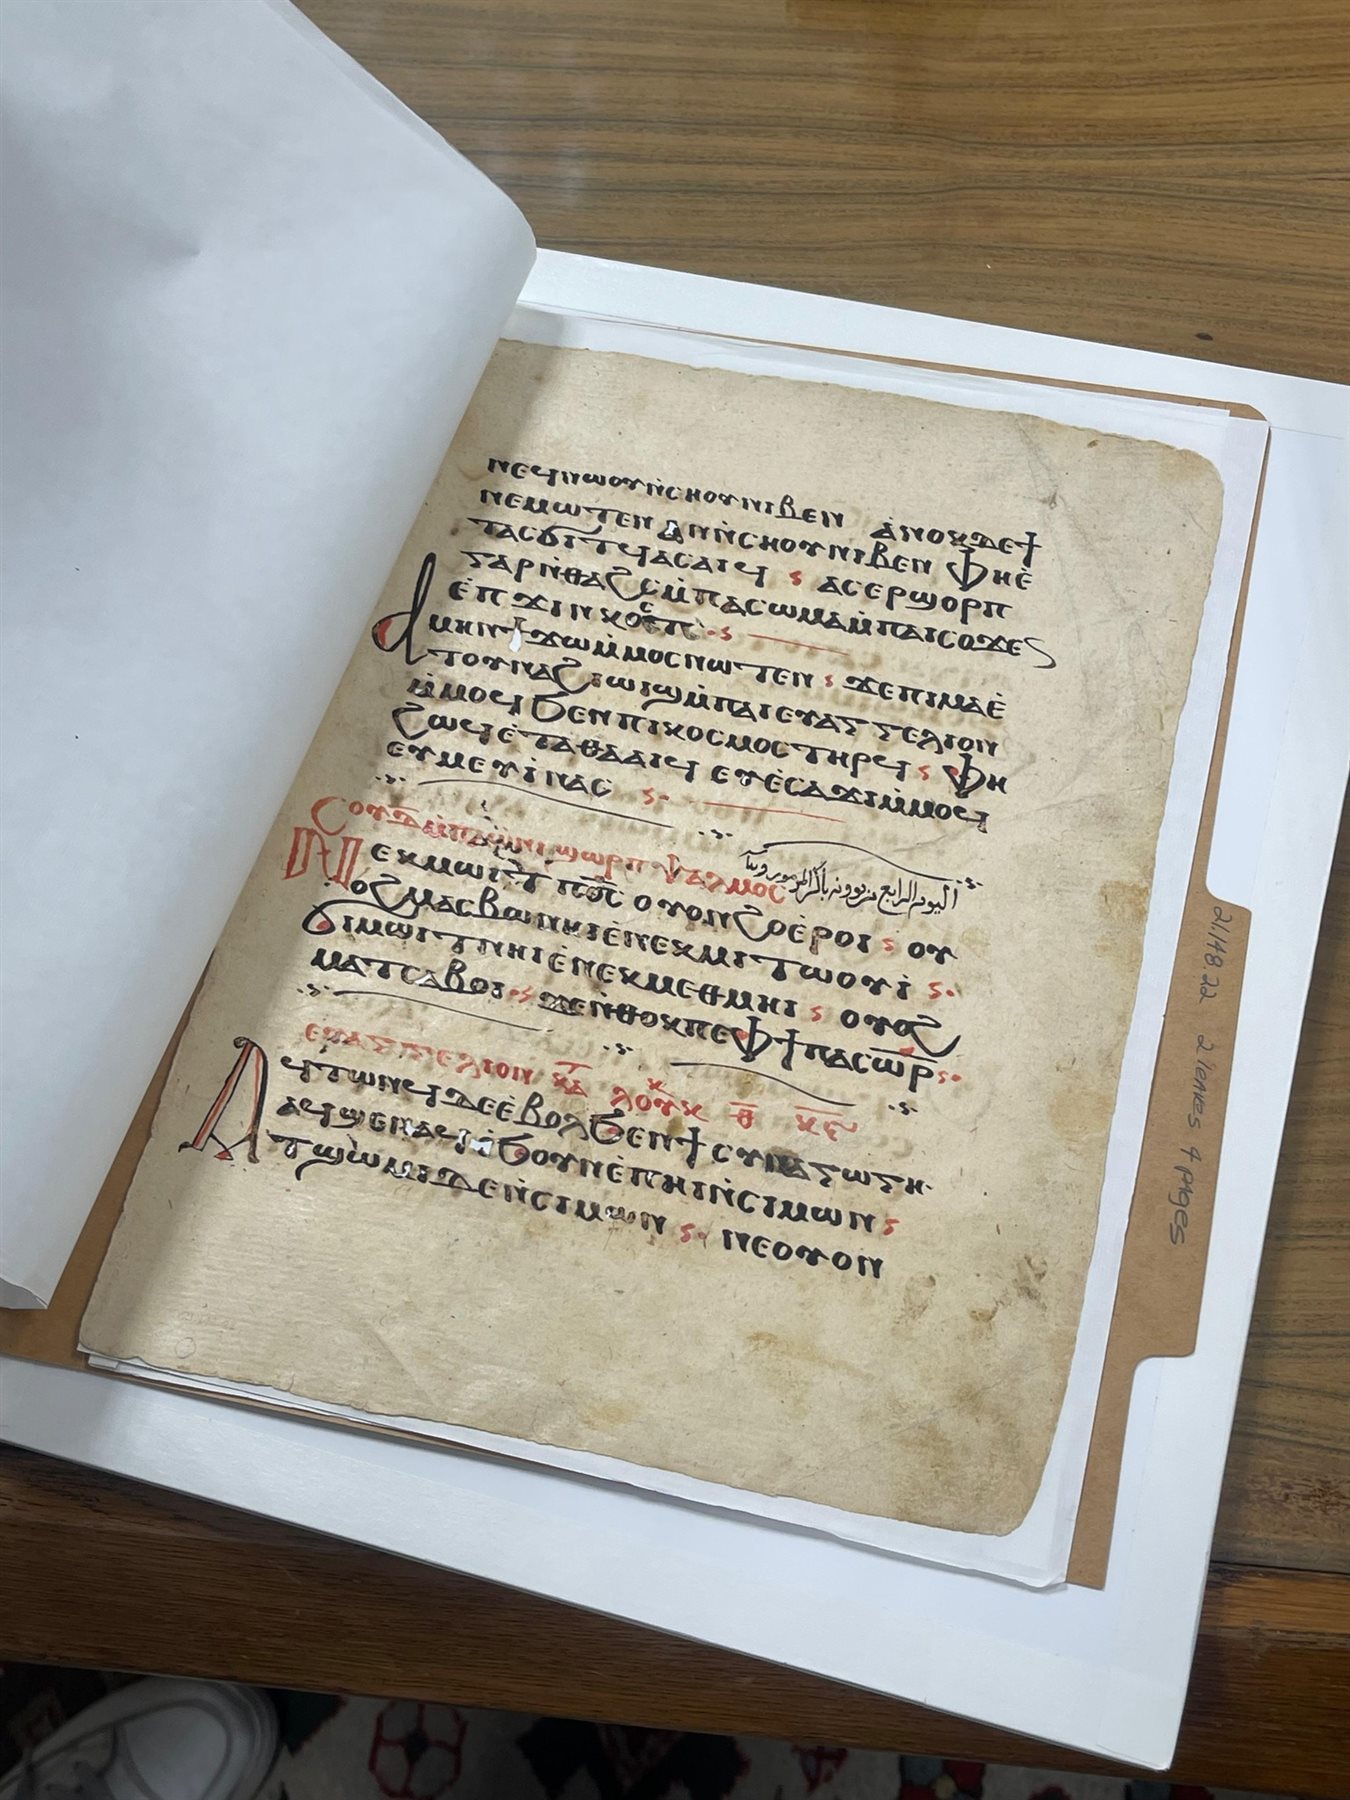 ⲛⲉϥⲛⲱⲟⲩⲛ̇ⲥⲏⲟⲩⲛⲓⲃⲉⲛ ⲁ̇ⲛⲟⲕⲇⲉϯ
ⲛⲉⲙⲱⲧⲉⲛ ⲁⲛⲛ̇ⲥⲏⲟⲩⲛⲓⲃⲉⲛ ⲫⲏⲉ̇
ⲧⲁⲥϭⲓⲧϥⲁⲥⲁⲓϥ ⲁⲥⲉⲣϣⲟⲣⲡ
ⲅⲁⲣⲛ̇ⲑⲁϩⲥⲙ̇ⲡⲁⲥⲱⲙⲁⲙ̇ⲡⲁⲓⲥⲟϫⲉⲛ
ⲉ̇ⲡϫⲓⲛⲕⲟⲥⲧ
ⲁⲙⲏⲛϯϫⲱⲙ̇ⲙⲟⲥⲛⲱⲧⲉⲛ ϫⲉⲡⲓⲙⲁⲉ̇
ⲧⲟⲩⲛⲁϩⲓⲱⲓϣⲙ̇ⲡⲁⲓⲉⲩⲁⲅⲅⲉⲗⲓⲟⲛ
ⲙ̇ⲙⲟϥϧⲉⲛⲡⲓⲕⲟⲥⲙⲟⲥⲧⲏⲣϥ ⲫⲏ
ϩⲱϥⲉ̇ⲧⲁⲑⲁⲁⲓϥ ⲉⲩⲉ̇ⲥⲁϫⲓⲙ̇ⲙⲟϥ
ⲉⲩⲙⲉⲩⲓ̇ⲛⲁⲥ
ⲥⲟⲩⲇ̅ⲙ̇ⲡⲁⲱ̇ⲛⲓ ϣⲱⲣⲡ ⲯⲁⲗⲙⲟⲥ
اليوم الرابع من بوونه باكر المزمور
ⲛⲉⲕⲙⲱⲓⲧ ⲡⲟ̅ⲥ̅ ⲟⲩⲟⲛϩⲟⲉ̇ⲣⲟⲓ ⲟⲩ
ⲟϩⲙⲁⲥⲃⲱⲛⲏⲓⲉ̇ⲛⲉⲕⲙⲓⲧⲱⲟⲩⲓ̇
ϭⲓⲙⲱⲓⲧⲛⲏⲓⲉ̇ⲛⲉⲕⲙⲉⲑⲙⲏⲓ ⲟⲩⲟϩ
ⲙⲁⲧⲥⲁⲃⲟⲓ ϫⲉⲛ̇ⲑⲟⲕⲡⲉⲫϯⲡⲁⲥⲱ̅ⲣ̅
ⲉⲩⲁⲅⲅⲉⲗⲓⲟⲛ ⲕⲁ̅ⲧ̅ ⲗⲟⲩⲕ ⲑ̅ ⲕ̅ⲋ̅
ⲁϥⲧⲱⲛϥⲇⲉⲉ̇ⲃⲟⲗϧⲉⲛϯⲥⲩⲛⲁⲅⲱⲅⲏ
ⲁϥϣⲉⲛⲁϥⲉ̇ϧⲟⲩⲛⲉ̇ⲡⲏⲓⲛ̇ⲥⲓⲙⲱⲛ
ⲧϣⲱⲙⲓⲇⲉⲛ̇ⲥⲓⲙⲱⲛ ⲛⲉⲟⲩⲟⲛ
21.148.22 2 leaves 4 pages